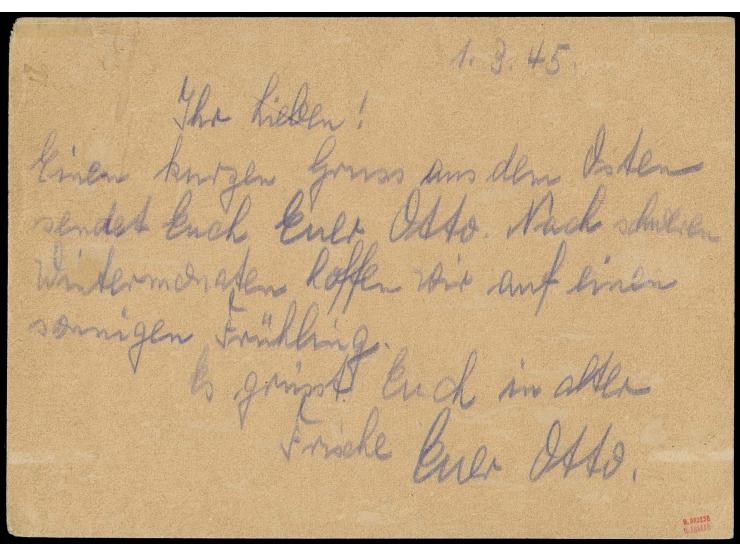 1. 3. 45.
Ihr Lieben!
Einen kurzen Gruss aus dem Osten
sendet Euch Euer Otto. Nach schweren
Wintermonaten hoffen wir auf einen
sonnigen Frühling.
Es grüsst Euch in alter
Frische Euer Otto.